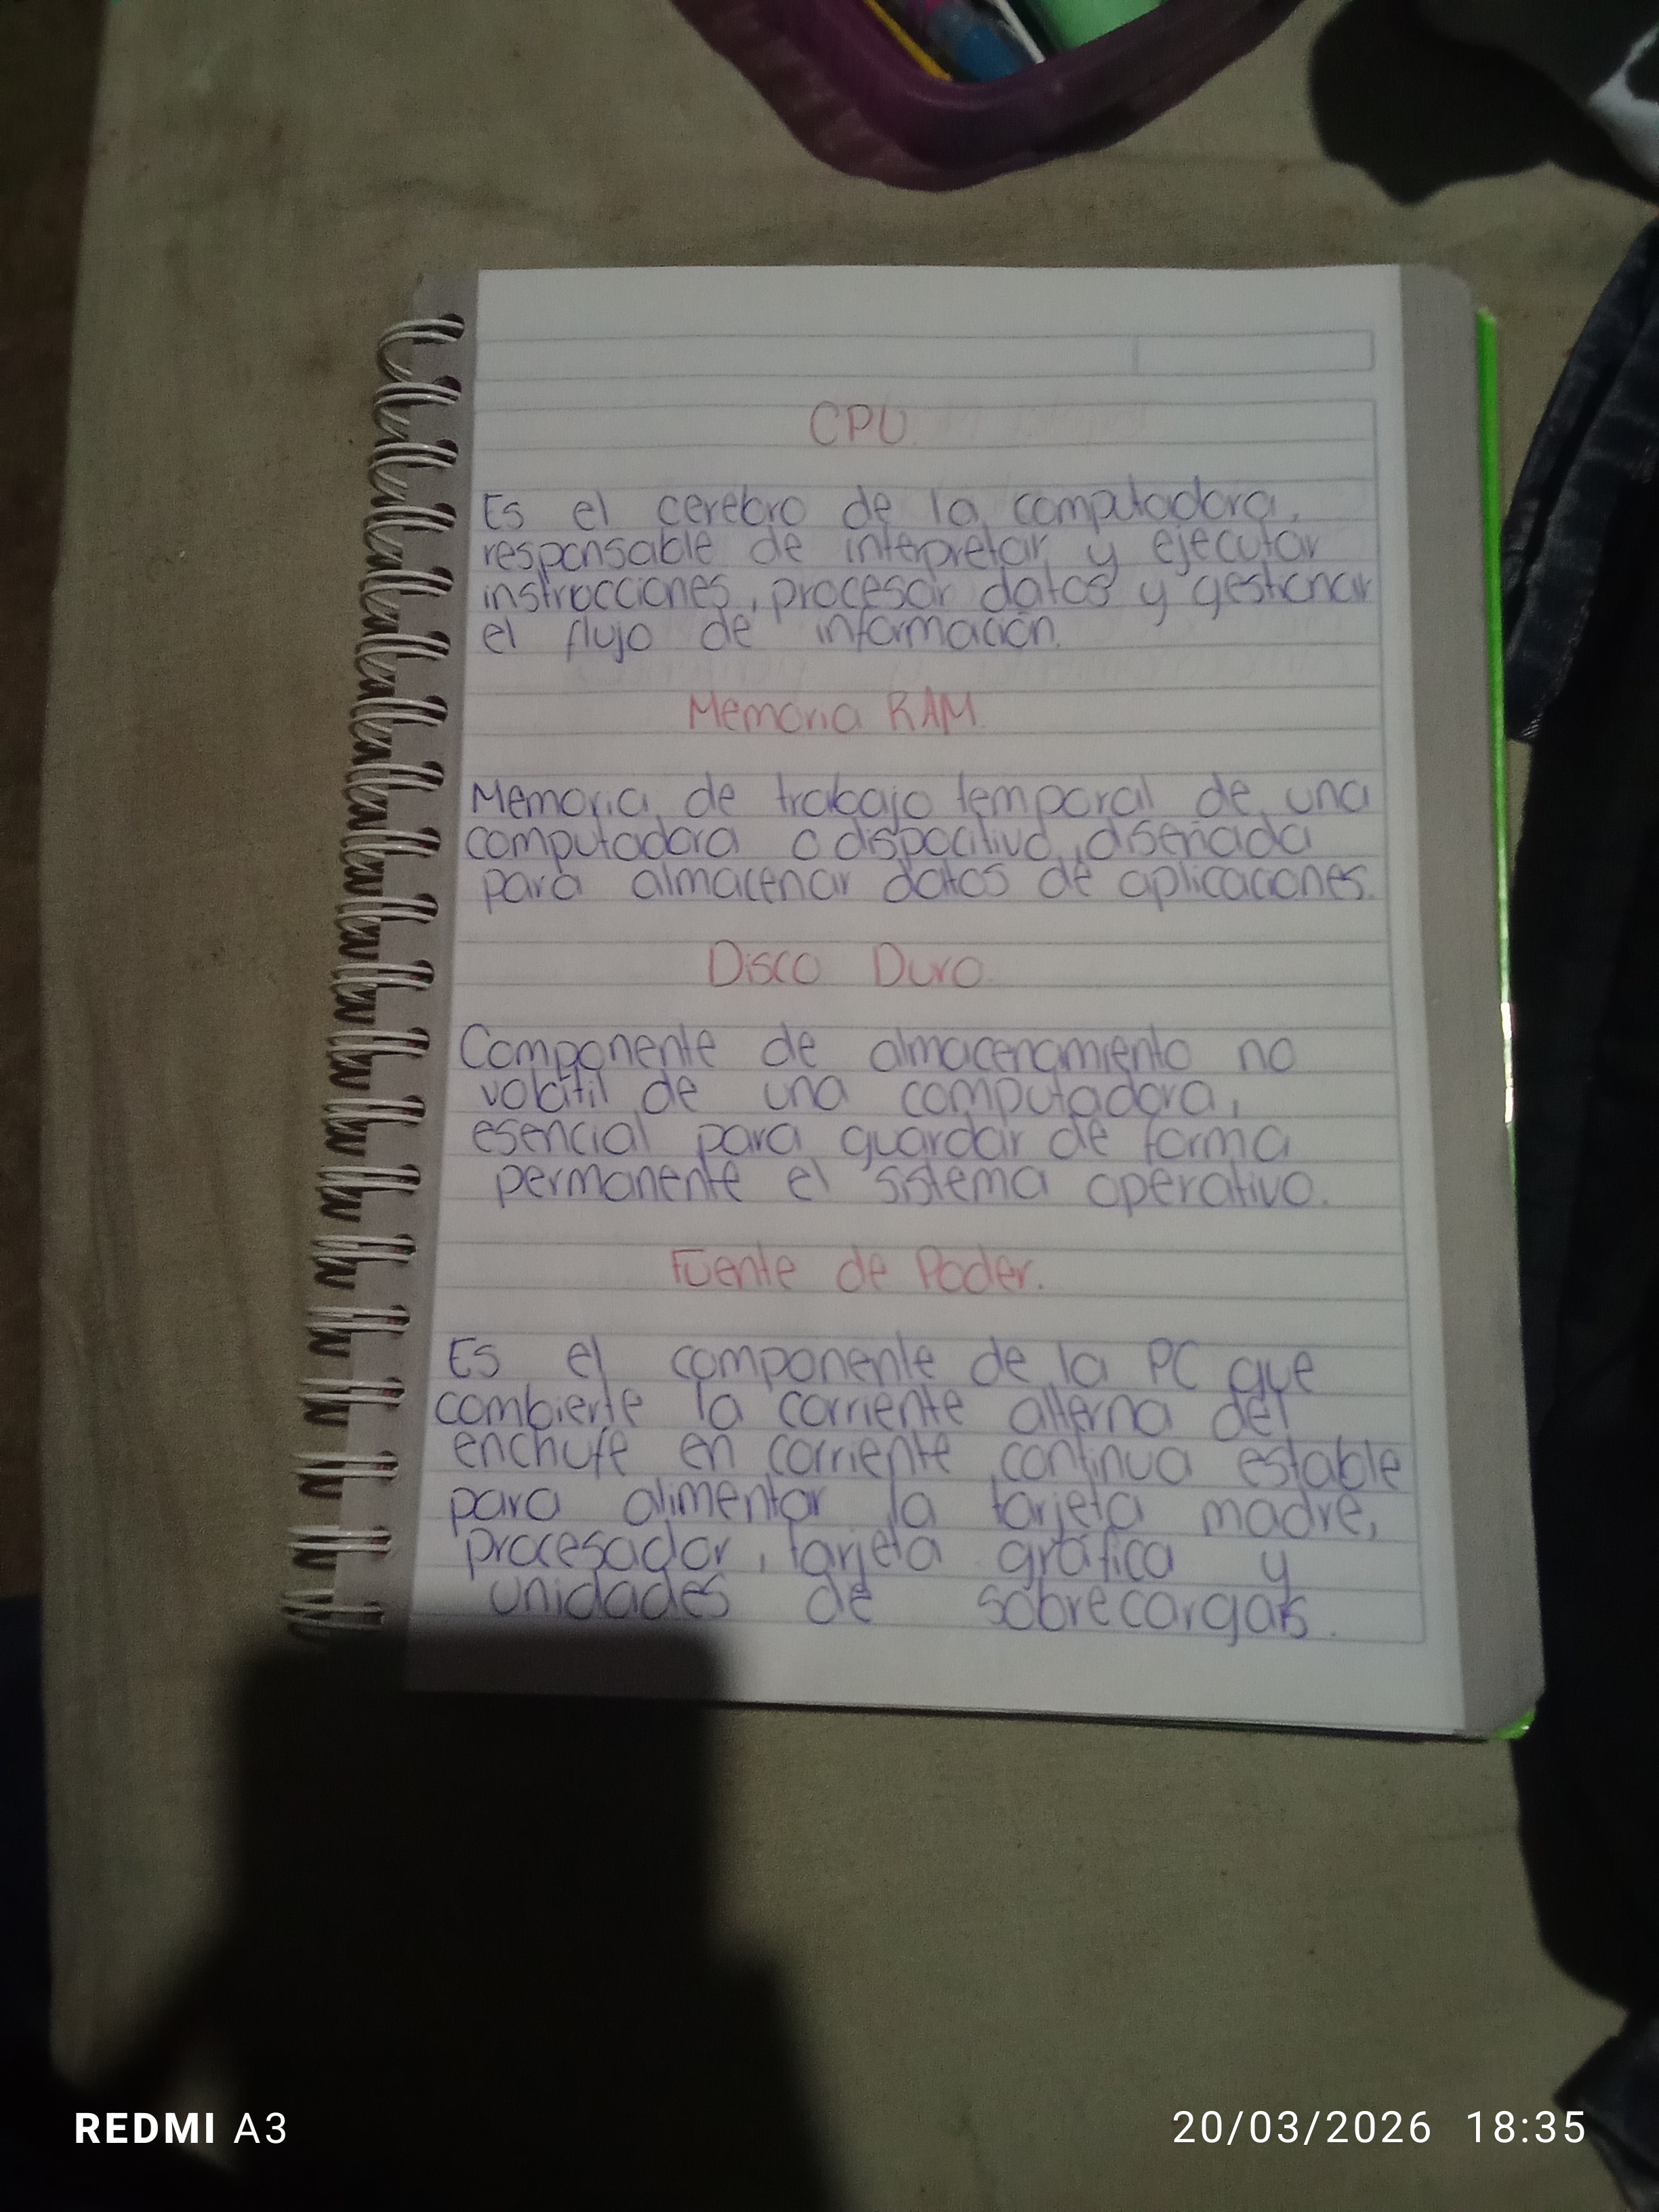 CPU.
Es el cerebro de la computadora,
responsable de interpretar y ejecutar
instrucciones, procesar datos y gestionar
el flujo de información.
Memoria RAM.
Memoria de trabajo temporal de una
computadora o dispocitivo, diseñada
para almacenar datos de aplicaciones.
Disco Duro.
Componente de almacenamiento no
volátil de una computadora,
esencial para guardar de forma
permanente el sistema operativo.
Fuente de Poder.
Es el componente de la PC que
combierte la corriente alterna del
enchufe en corriente continua estable
para alimentar la tarjeta madre,
procesador, tarjeta gráfica y
unidades de sobrecargas.
REDMI A3
20/03/2026 18:35